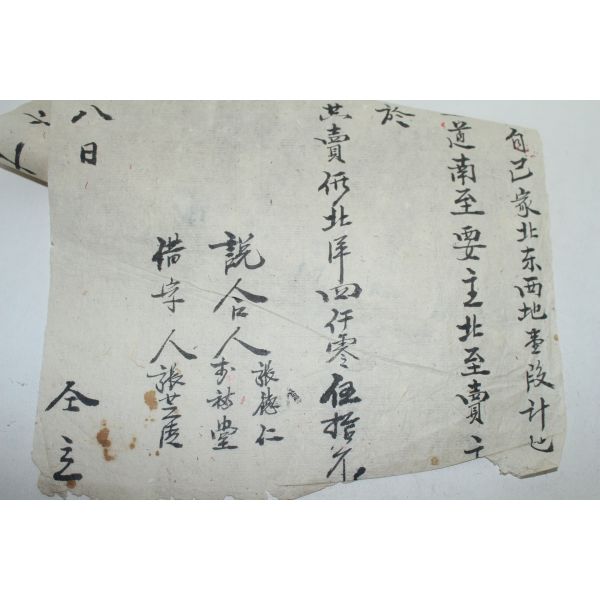 自己家北东西地壹段計地
道南至要主北至賣主
於
共賣價北洋四仟零伍拾元
說合人 張德仁
堂
借字人 張
八日 仝立